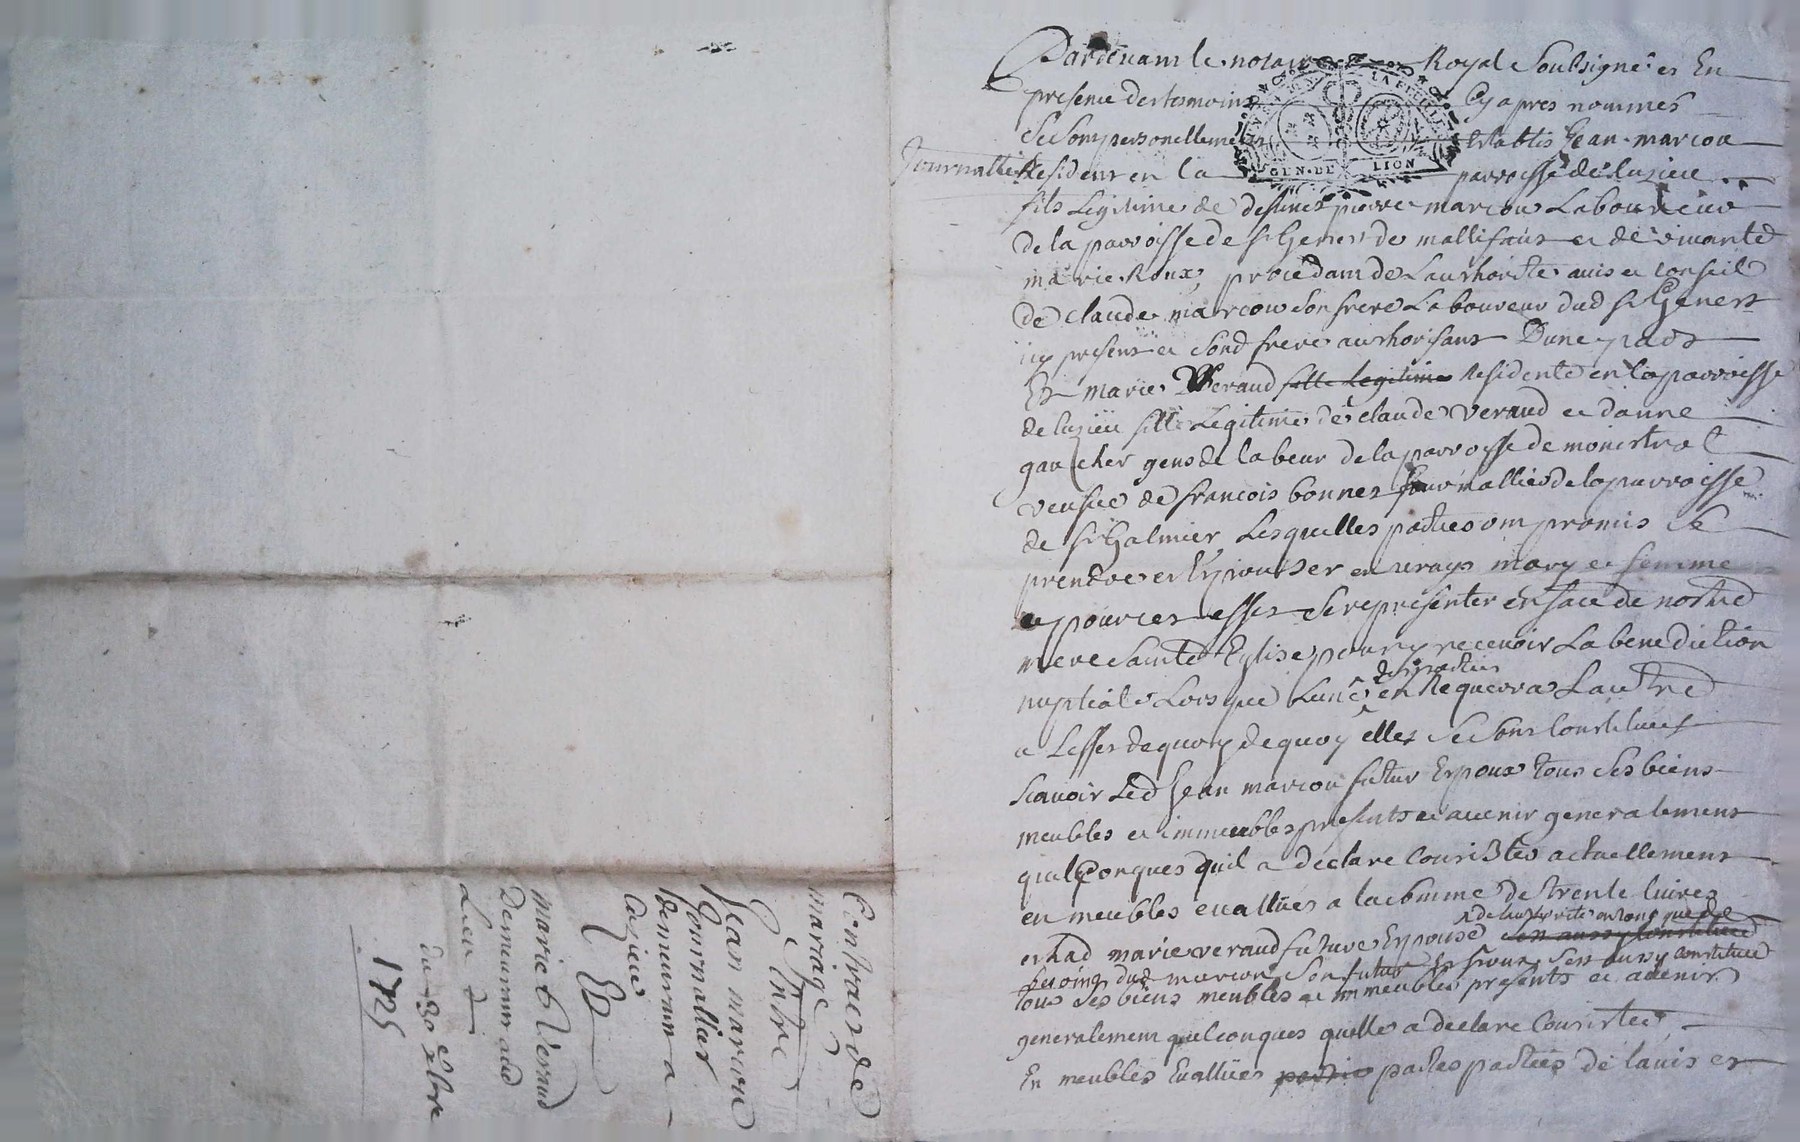 Pardevant le notaire Royal Soubsigné et En
presence des tesmoins Cy apres nommés
Se Sont personellement Establis Jean marcou
Journallier Resident en la parroisse de Cuzieu
fils Legitime de deffunct pierre marcou Laboureur
de la parroisse de St Genest de mallifaut et de vivante
marie Roux, procedant de Lauthorité avis et conseil
de claude marcou son frere Laboureur dud St Genest
icy present et sond frere authorisant Dune part
Et marie Veraud fille Legitime Residente en la parroisse
de Cuzieu fille Legitime de claude veraud et danne
gaucher gens de labeur de la parroisse de monistrol
veufve de francois bonnet Journallier de la parroisse
de St Galmier, Lesquelles parties ont promis se
prendre et Epouser en vrays mary et femme
et pour cet effet se representer en face de nostre
mere sainte Eglise pour y recevoir La benediction
nuptiale Lors que Lune des parties en Requerra Lautre
a Leffet de quoy de quoy elles se sont Constituées
scavoir Led Jean marcou futur Epoux tous ses biens
meubles et immeubles presents et avenir generalement
quelconques quil a declaré Consister actuellement
en meubles evallués a la somme de trente livres
et lad marie veraud future Epouse de lauthorité en tant que de
besoing dud marcou son futur Epoux sest aussy constituée
tous ses biens meubles et immeubles presents et avenir
generalement quelconques quelle a declaré Consister
En meubles Evallués par les parties de lavis et
Contract de
mariage
Entre
Jean marcou
Journallier
demeurant a
Cuzieu
Et
marie Veraud
Demeurant aud
Lieu
du 30e xbre
1725
GEN. DE LION